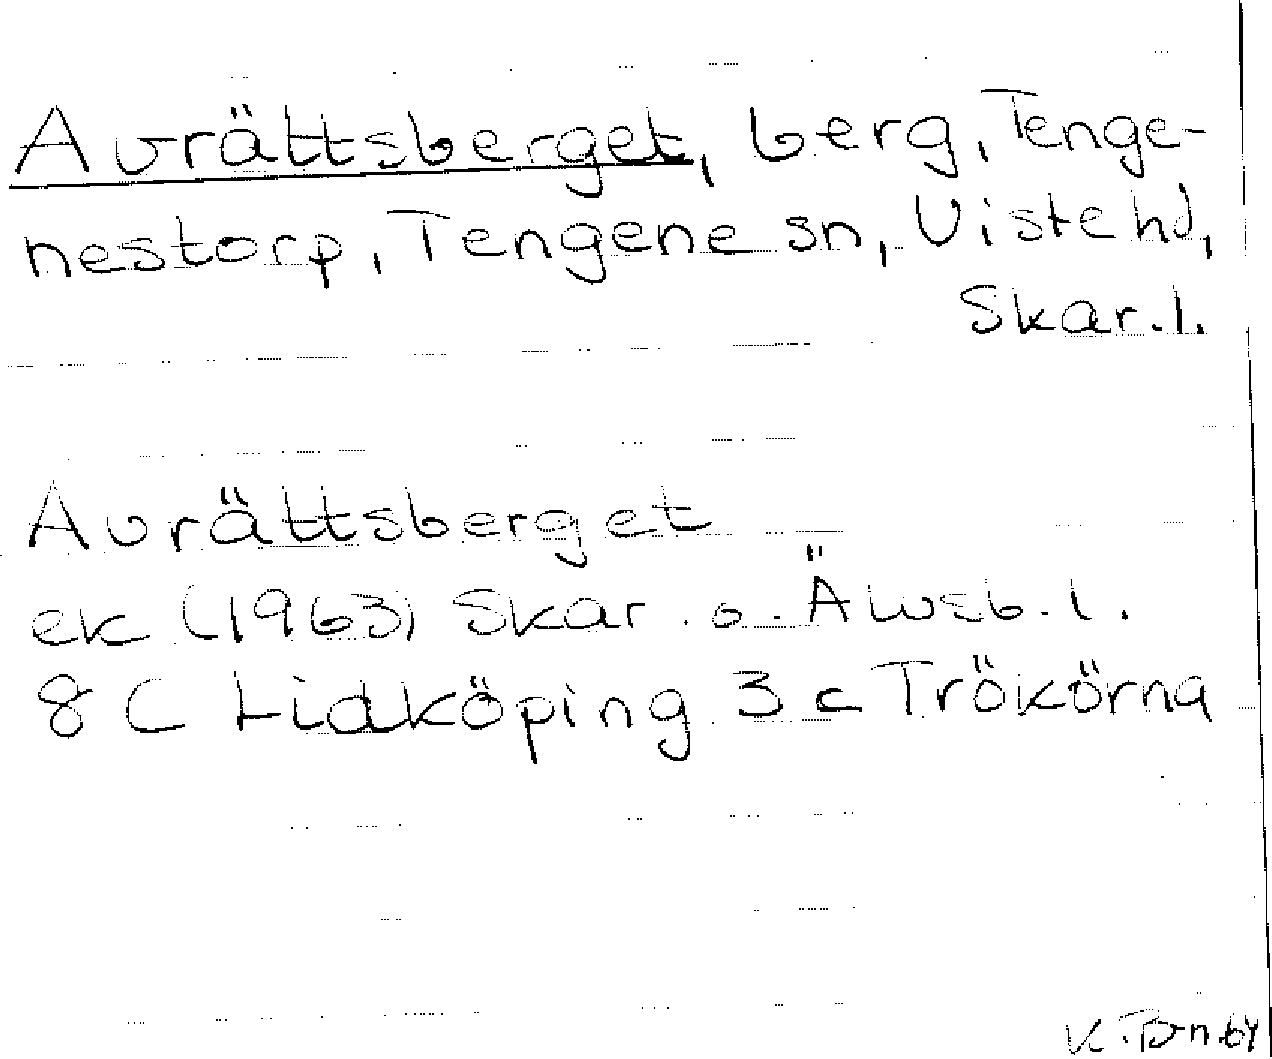 Avrättsberget, berg, Tenge-
nestorp, Tengene sn, Viste hd,
Skar. l.
Avrättsberget
ek (1963) Skar. o. Älvsb. l.
8 C Lidköping 3 c Trökörna